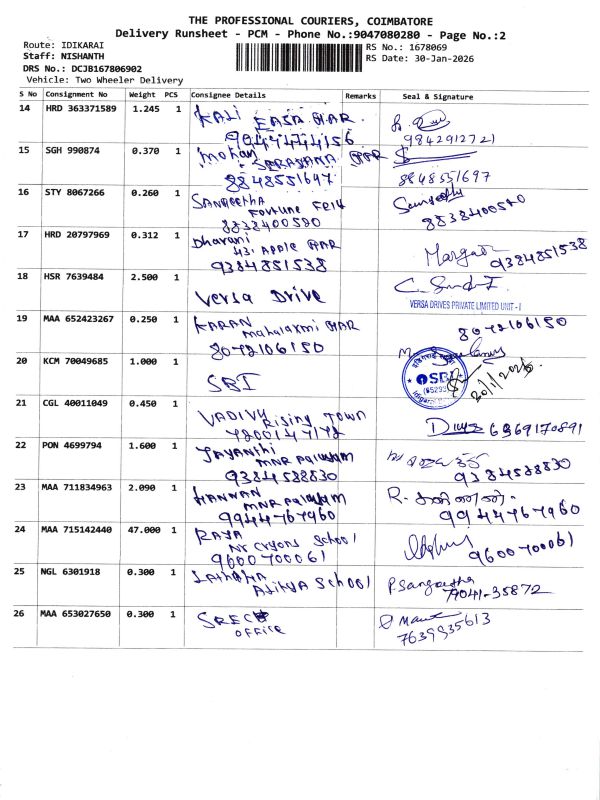 THE PROFESSIONAL COURIERS, COIMBATORE
Delivery Runsheet - PCM - Phone No.:9047080280 - Page No.:2
Route: IDIKARAI
RS No.: 1678069
Staff: NISHANTH
RS Date: 30-Jan-2026
DRS No.: DCJB167806902
Vehicle: Two Wheeler Delivery
S No Consignment No Weight PCS Consignee Details Remarks Seal & Signature
14 HRD 363371589 1.245 1 KALI
9842912721
15 SGH 990874 0.370 1 Mohan
8848551697 8848551697
16 STY 8067266 0.260 1 Sangeetha
Fortune
8838400580 8838400580
17 HRD 20797969 0.312 1 Dharani
431 Apple
9384851538 9384851538
18 HSR 7639484 2.500 1 Versa Drive
VERSA DRIVES PRIVATE LIMITED UNIT - I
19 MAA 652423267 0.250 1 KARAN
Mahalaxmi
8072106150 8072106150
20 KCM 70049685 1.000 1 SBI SBI
21 CGL 40011049 0.450 1 VADIVU Rising Town
7200147172 6369170891
22 PON 4699794 1.600 1 JAYANTHI
MNR
9384588830 9384588830
23 MAA 711834963 2.090 1 KANNAN R.
MNR
9944767960 9944767960
24 MAA 715142440 47.000 1 RAJA
School
9600700061 9600700061
25 NGL 6301918 0.300 1 P.Sangeetha
Aditya School 79041-35872
26 MAA 653027650 0.300 1 SREC
OFFICE 7639935613